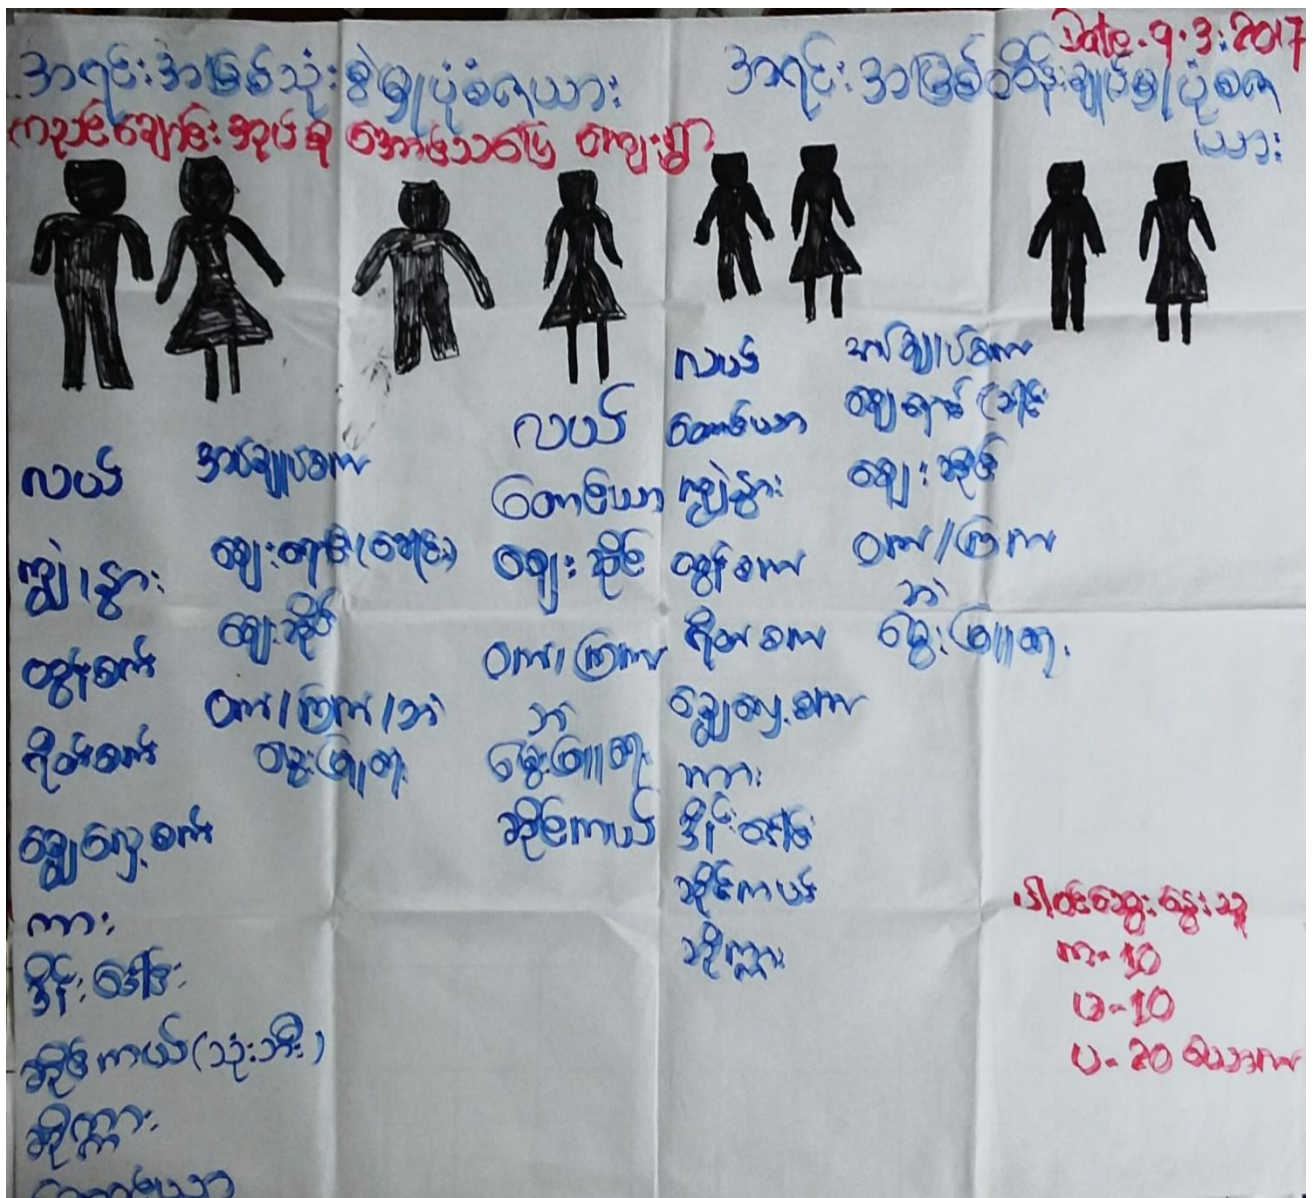 Date. 9.3.2017
အရင်းအမြစ်သုံးစွဲမှုပုံစံဇယား
အရင်းအမြစ်ထိန်းချုပ်မှုပုံစံဇယား
ကညင်ချောင်းအုပ်စု အောင်သပြေ ကျေးရွာ
လယ်
ကျွဲ၊ နွား
ထွန်စက်
စက်
ခြွေလှေ့စက်
ကား
ဒိုင်းဒေါင်း
ဆိုင်ကယ်(သုံးဘီး)
ဆိုက္ကား
တောင်ယာ
အပ်ချုပ်စက်
ဈေးရောင်း
ဈေးဆိုင်
ဝက်/ကြက်/ဘဲ
မွေးမြူရေး
လယ်
တောင်ယာ
ဈေးဆိုင်
ဝက်/ကြက်
ဘဲ
မွေးမြူရေး
ဆိုင်ကယ်
လယ်
တောင်ယာ
ကျွဲနွား
ထွန်စက်
စက်
ခြွေလှေ့စက်
ကား
ဒိုင်းဒေါင်း
ဆိုင်ကယ်
ဆိုက္ကား
အပ်ချုပ်စက်
ဈေးဆိုင်
ဝက်/ကြက်
ဘဲ
မွေးမြူရေး
ပါဝင်ဆွေးနွေးသူ
က - 10
မ - 10
ပ - 20 ယောက်